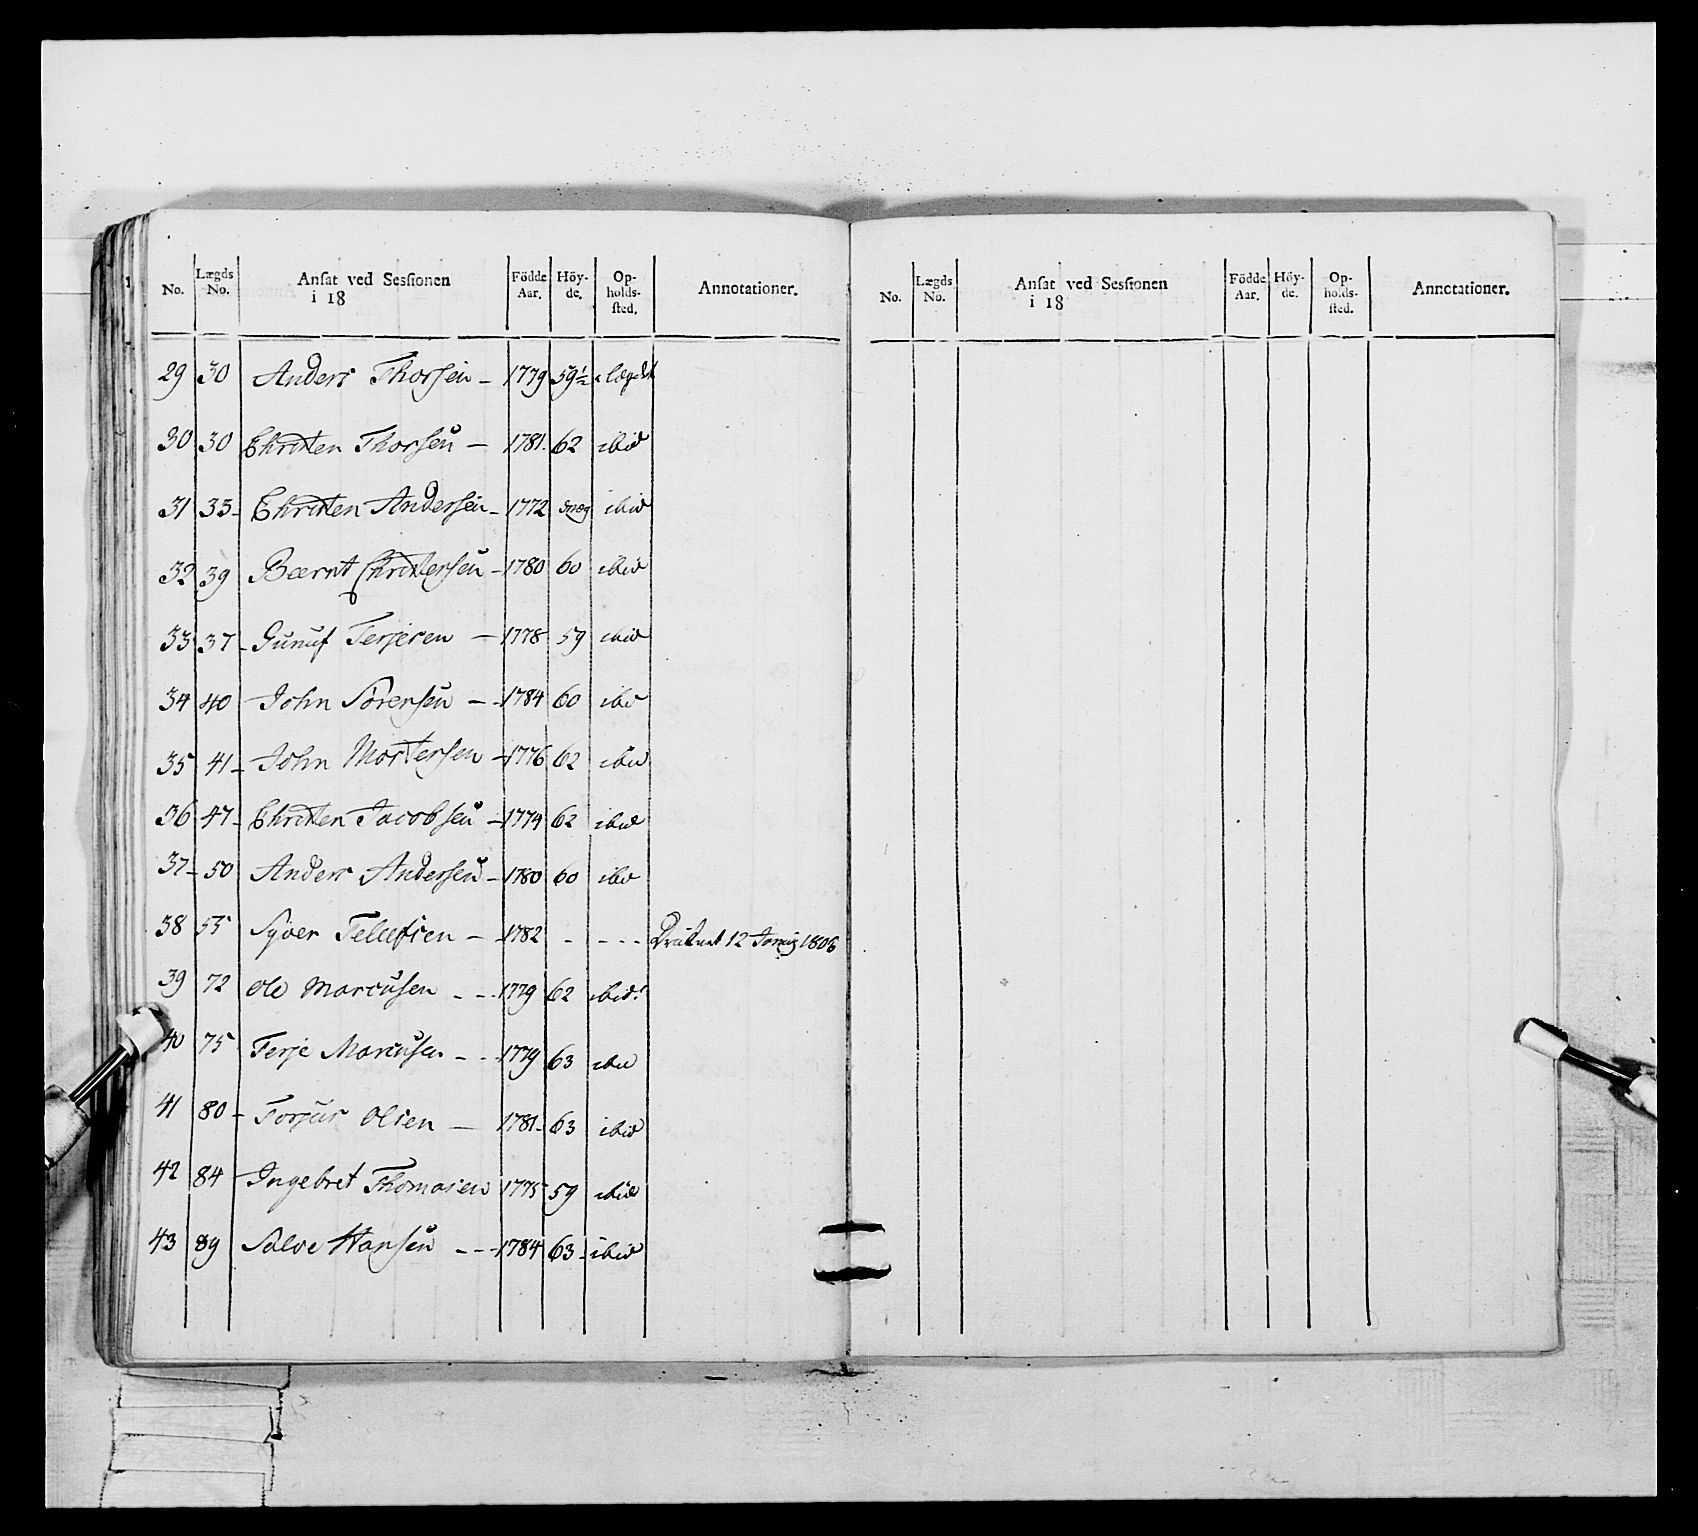 No. Lægds No. Ansat ved Sessionen i 18 Födde Aar. Höyde. Opholdssted. Annotationer.
29 30 Anders Thorsen - 1779 59½ i Lægdet
30 30 Christen Thorsen - 1781. 62 ibid
31 33- Christen Andersen - 1772 ibid
32 39 Bærnt Christensen - 1780 60 ibid
33 37- Gunuf Terjesen - 1778 59 ibid
34 40 John Sörensen - - 1784 60 ibid
35 41- John Mortensen - 1776 62 ibid
36 47- Christen Jacobsen - 1774 62 ibid
37- 50 Anders Andersen - 1780 60 ibid
38 55 Syver Telufsen - - 1782 - - - - - Druknet 12 1806
39 72 Ole Marcusen - - - 1779 62 ibid:
40 75 Terje Marcusen - - - 1779 63 ibid
41 80- Torjus Olsen - 1781- 63 ibid
42 84 Ingebret Thomasen 1775 59 ibid
43 89 Salve Hansen - - - 1784 63- ibid
No. Lægds No. Ansat ved Sessionen i 18 Födde Aar. Höyde. Opholdssted. Annotationer.